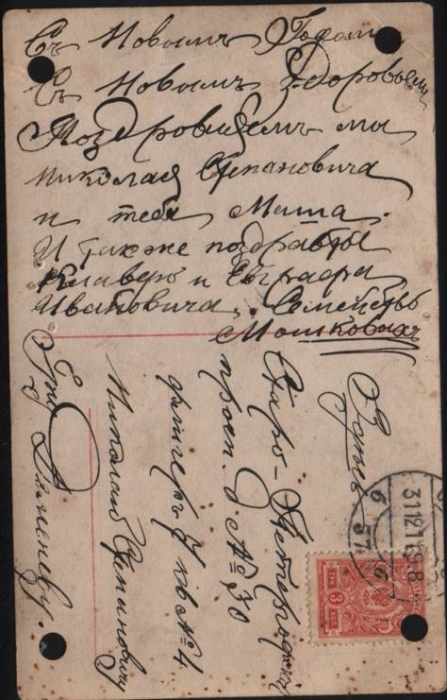 Съ Новымъ Годомъ
Съ Новымъ Здоровьем
Поздровляемъ мы
Николая Степановича
и тебя Маша.
И также поздравь ты
Клавдю и Евграфа
Ивановича. Семейство
Мошковыхъ
Здесь
Старо-Петергофск
просп. д № 30
кв № 4
Николаю Степановичу
Его
31 12 1
3